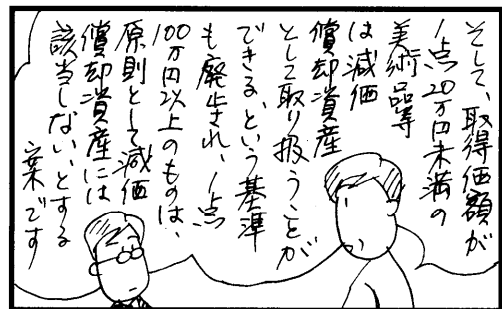 そして、取得価額が
1点20万円未満の
美術品等
は減価
償却資産
として取り扱うことが
できる、という基準
も廃止され、1点
100万円以上のものは、
原則として減価
償却資産には
該当しない、とする
案です